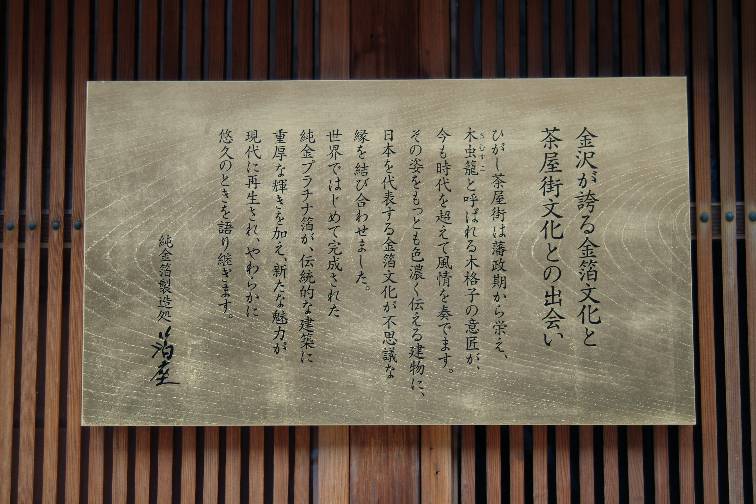 金沢が誇る金箔文化と
茶屋街文化との出会い
ひがし茶屋街は藩政期から栄え、
木虫籠と呼ばれる木格子の意匠が、
きむすこ
今も時代を超えて風情を奏でます。
その姿をもっとも色濃く伝える建物に、
日本を代表する金箔文化が不思議な
縁を結び合わせました。
世界ではじめて完成された
純金プラチナ箔が、伝統的な建築に
重厚な輝きを加え、新たな魅力が
現代に再生され、やわらかに
悠久のときを語り継ぎます。
純金箔製造処 箔座